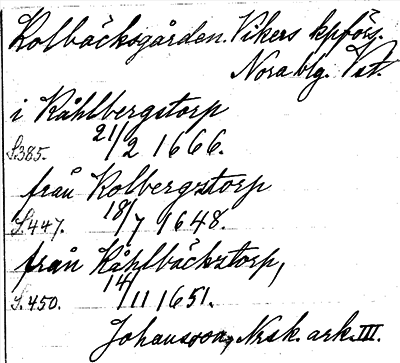 Kolbäcksgården. Vikers kpförs.
Nora blg. Vst.
i Kåhlbergstorp
S.385. 21/2 1666.
från Kolbergstorp
S.447. 18/7 1648.
från Kåhlbäckstorp,
S.450. 14/11 1651.
Johansson, Nrsk. ark. III.